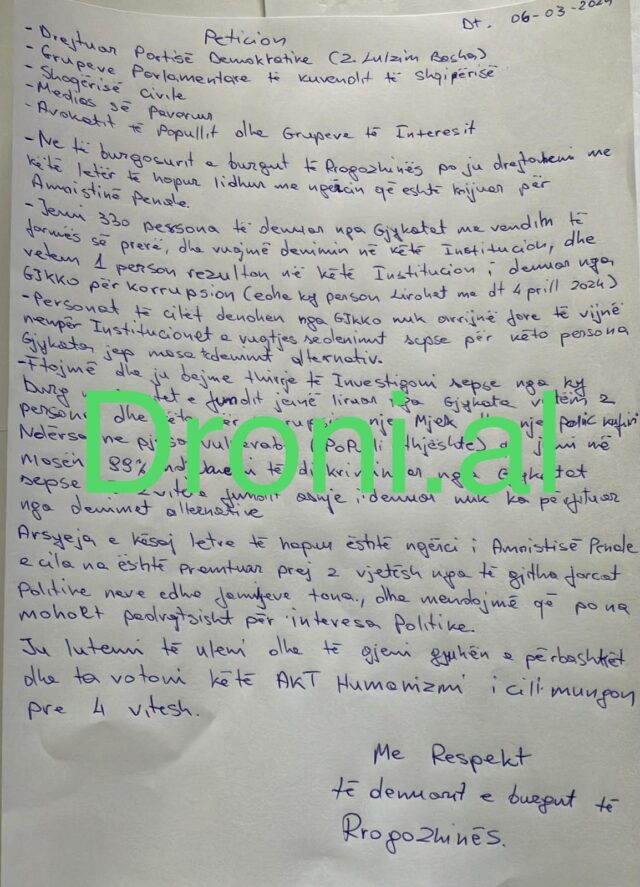 Dt. 06-03-2024
Peticion
- Drejtuar Partisë Demokratike (Z. Lulzim Basha)
- Grupeve Parlamentare të kuvendit të shqipërisë
- Shoqërisë Civile
- Medias së Pavarur
- Avokatit të Popullit dhe Grupeve të Interesit
- Ne të burgosurit e burgut të Rrogozhinës po ju drejtohemi me
këtë letër të hapur lidhur me ngërcin që eshtë krijuar për
Amnistinë Penale.
- Jemi 330 persona të denuar nga Gjykatat me vendim të
formës së prerë, dhe vuajmë denimin në këtë Institucion, dhe
vetem 1 person rezulton në këtë Institucion i denuar nga
GJKKO për Korrupsion (edhe ky person lirohet me dt 4 prill 2024)
- Personat të cilët denohen nga GJKKO nuk arrijnë fare të vijnë
nëpër Institucionet e vuajtjes sedenimit sepse për këto persona
Gjykata jep masa denimi alternativ.
- Ftojmë dha ju bejme thirrje të Investigoni sepse nga ky
burg e fundit janë liruar nga Gjykata vetëm 2
persona dhe një Mjek një polic kufiri
Ndërsa ne pjesa vulnerabël Popull thjështë) jemi në
Masën 99% të diskriminuar nga Gjykatat
sepse 2 vite e fundit asnje i denuar nuk ka përfituar
nga denimet alternative
Arsyeja e kësaj letre të hapur është ngërci i Amnistisë Penale
e cila na është premtuar prej 2 vjetësh nga të gjitha forcat
Politike neve edhe familjeve tona, dhe mendojmë që po na
mohohet padrejtsisht për interesa Politike.
Ju lutemi të uleni dhe të gjeni gjuhën e përbashkët
dhe ta votoni këtë AKT Humanizmi i cili mungon
pre 4 vitesh.
Me Respekt
të denuarit e burgut të
Rrogozhinës.
Droni.al